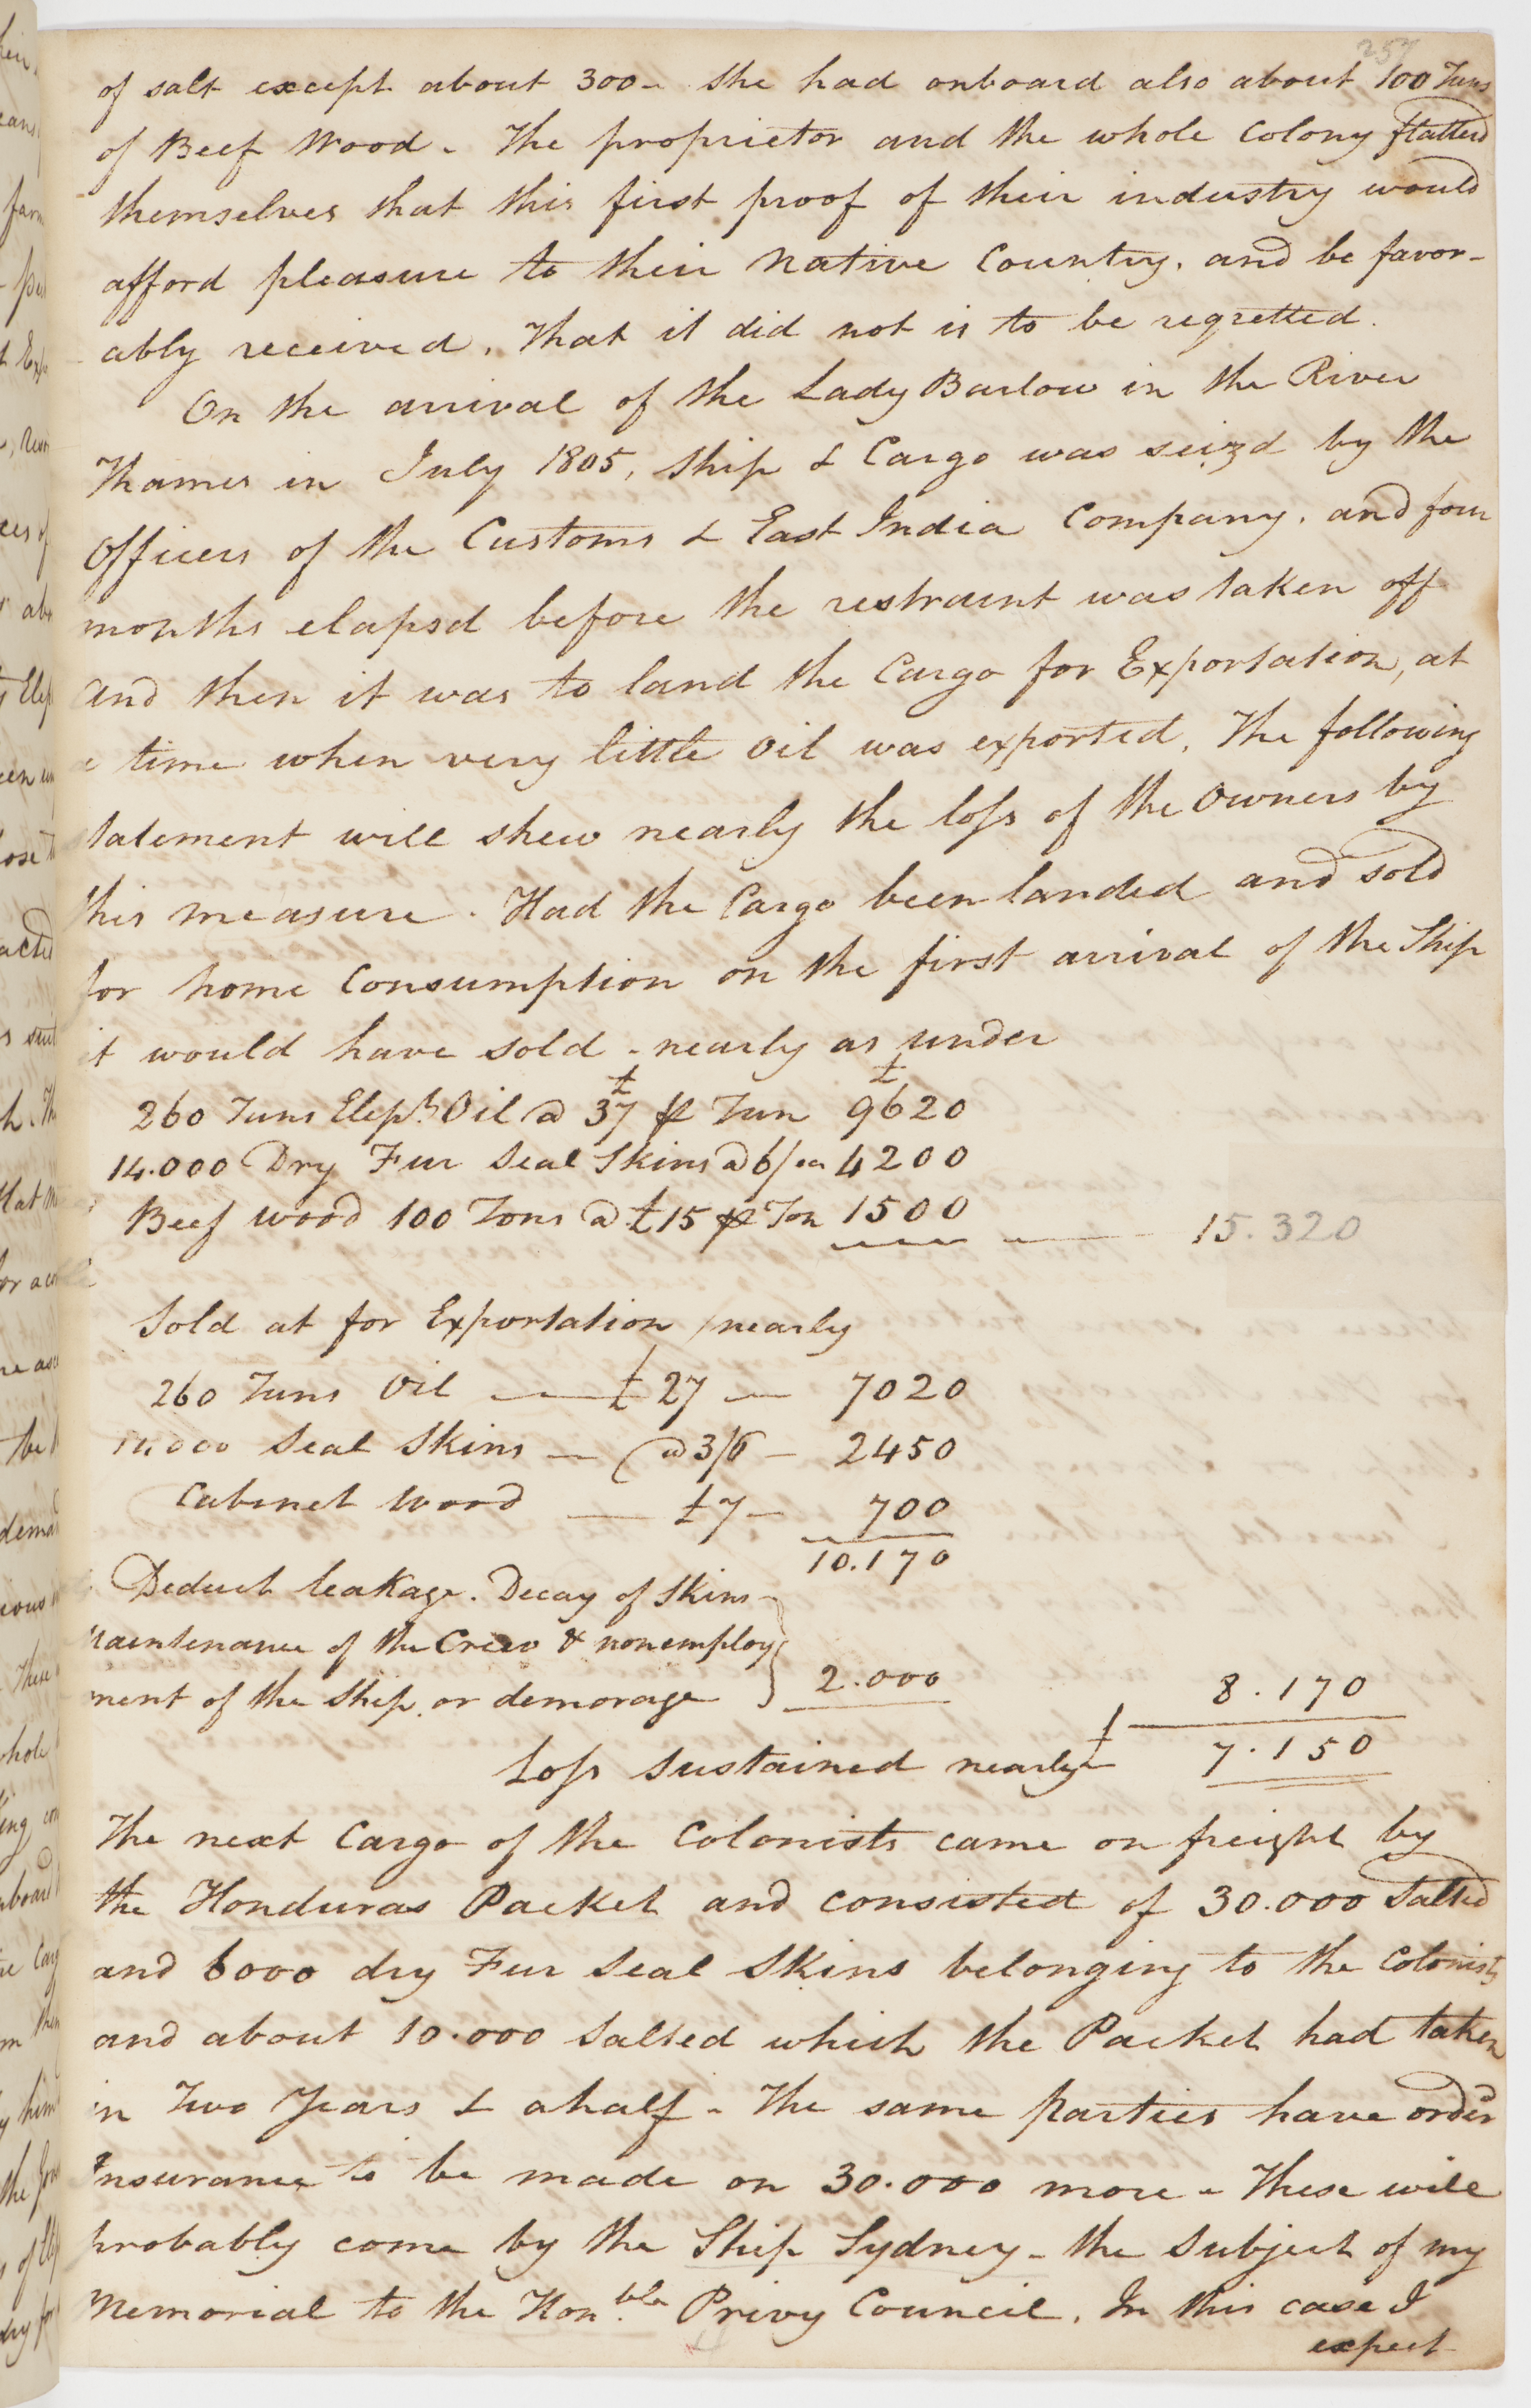 257
of salt except about 300 - She had onboard also about 100 Tuns
of Beef Wood - The proprietor and the whole Colony flatterd
themselves that this first proof of their industry would
afford pleasure to their Native Country, and be favor-
ably received, That it did not is to be regretted.
On the arrival of the Lady Barlow in the River
Thames in July 1805, Ship & Cargo was seizd by the
Officers of the Customs & East India Company, and four
months elapsd before the restraint was taken off
and then it was to land the Cargo for Exportation, at
a time when very little Oil was exported, The following
statement will shew nearly the loss of the Owners by
this measure. Had the Cargo been landed and sold
for home Consumption on the first arrival of the Ship
it would have sold - nearly as under
260 Tuns Eleph.t Oil @ £37 ⅌ Tun £9620
14.000 Dry Fur Seal Skins @ 6/ ea 4200
Beef wood 100 Tons @ £15 ⅌ Ton 1500 — 15.320
Sold at for Exportation / nearly
260 Tuns Oil — £27 — 7020
14.000 Seal Skins — @ 3/6 — 2450
Cabinet Wood — £7 — 700
10.170
Deduct leakage. Decay of Skins -
Maintenance of the Crew & nonemploy
ment of the Ship. or demorage } 2.000 8.170
Loss sustained nearly £ 7.150
The next Cargo of the Colonists came on freight by
the Honduras Packet and consisted of 30.000 Salted
and 6000 dry Fur Seal Skins belonging to the Colonists
and about 10.000 Salted which the Packet had taken
in Two Years & a half - The same parties have orderd
Insurance to be made on 30.000 more - These will
probably come by the Ship Sydney - the Subject of my
Memorial to the Hon.ble Privy Council. In this case I
expect